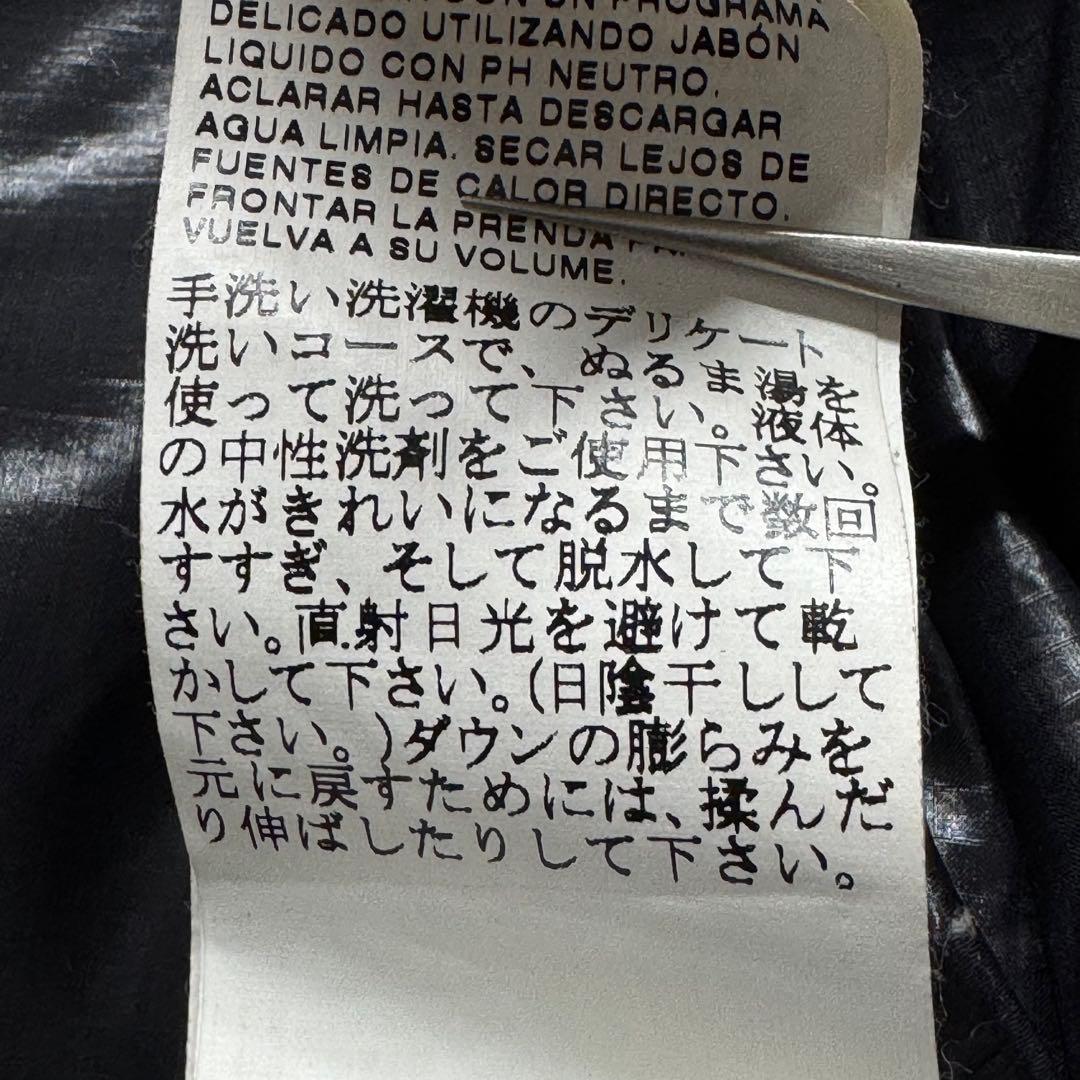 UN PROGRAMA
DELICADO UTILIZANDO JABÓN
LIQUIDO CON PH NEUTRO.
ACLARAR HASTA DESCARGAR
AGUA LIMPIA. SECAR LEJOS DE
FUENTES DE CALOR DIRECTO.
FRONTAR LA PRENDA
VUELVA A SU VOLUME.
手洗い洗濯機のデリケート
洗いコースで、ぬるま湯を
使って洗って下さい。液体
の中性洗剤をご使用下さい。
水がきれいになるまで数回
すすぎ、そして脱水して下
さい。直射日光を避けて乾
かして下さい。(日陰干しして
下さい。)ダウンの膨らみを
元に戻すためには、揉んだ
り伸ばしたりして下さい。